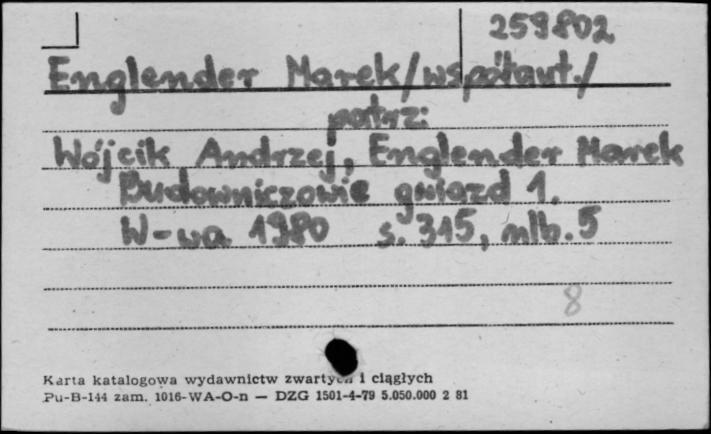 259802
Englender Marek/współaut./
patrz:
Wójcik Andrzej, Englender Marek
Budowniczowie gwiazd 1.
W-wa 1980 s. 315, nlb. 5
8
Karta katalogowa wydawnictw zwartych i ciągłych
Pu-B-144 zam. 1016-WA-O-n — DZG 1501-4-79 5.050.000 2 81